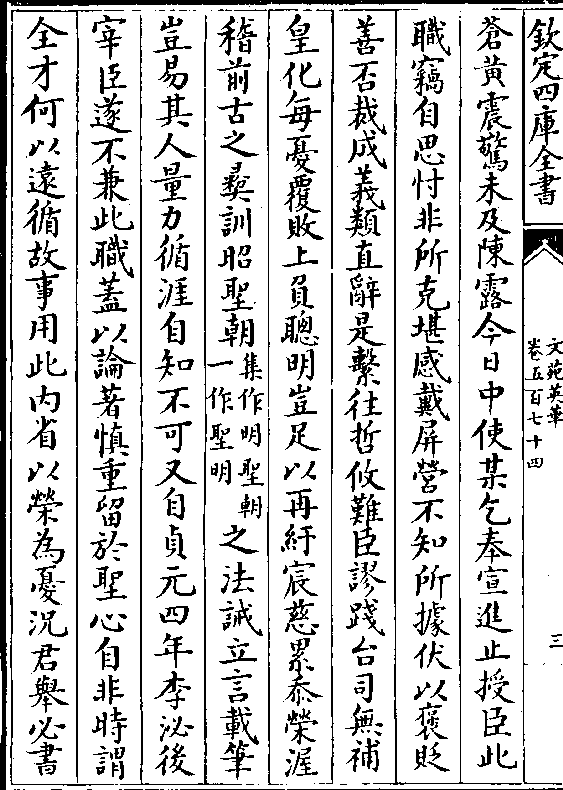 欽定四庫全書
文苑英華
卷五百七十四
三
蒼黃震驚未及陳露今日中使某乞奉宣進止授臣此
職竊自思忖非所克堪感戴屏營不知所據伏以褒貶
善否裁成義類直辭是繫往哲攸難臣謬踐台司無補
皇化每憂覆敗上負聰明豈足以再紆宸慈累忝榮渥
稽前古之彞訓昭聖朝集作明聖朝一作聖明之法誡立言載筆
豈易其人量力循涯自知不可又自貞元四年李泌後
宰臣遂不兼此職蓋以論著慎重留於聖心自非時謂
全才何以遠循故事用此內省以榮為憂況君舉必書